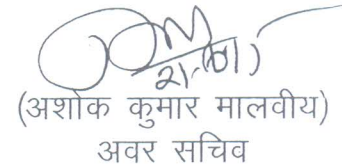 (अशोक कुमार मालवीय)
अवर सचिव